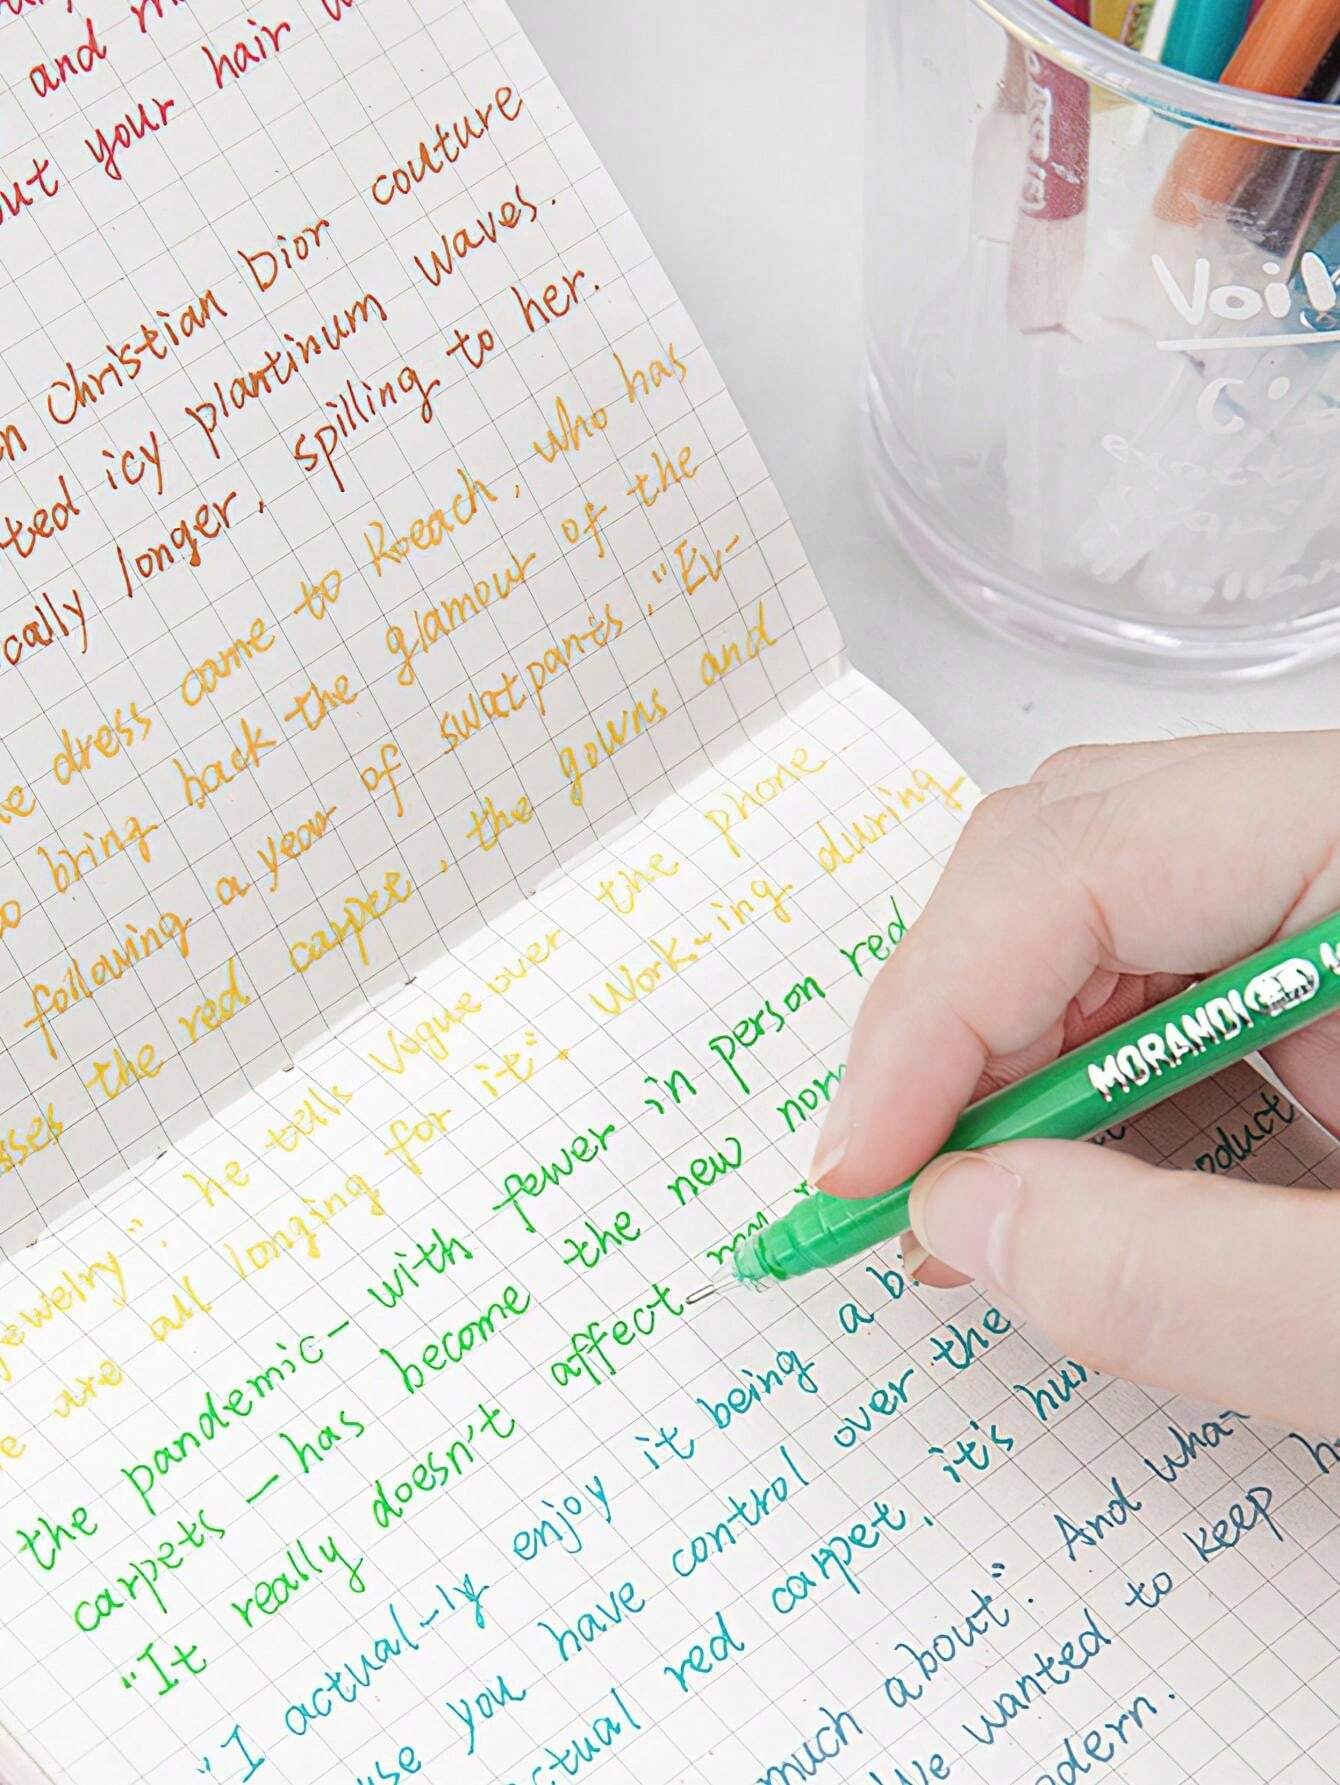 and
out your hair
Christian Dior couture
ted icy plantinum waves.
cally longer, spilling to her.
dress came to Roeach, who has
to bring back the glamour of the
following a year of swatpants. "Ev-
sses the red carpet, the gowns and
jewelry". he tells Vogue over the phone
are all longing for it". Work-ing during
the pandemic- with fewer in person red
carpets - has become the new norm
"It really doesn't affect my
"I actual-ly enjoy it being a bi
use you have control over the
ctual red carpet, it's hu
much about". And what
We wanted to keep h
odern.
oduct
MORANDI
Voil